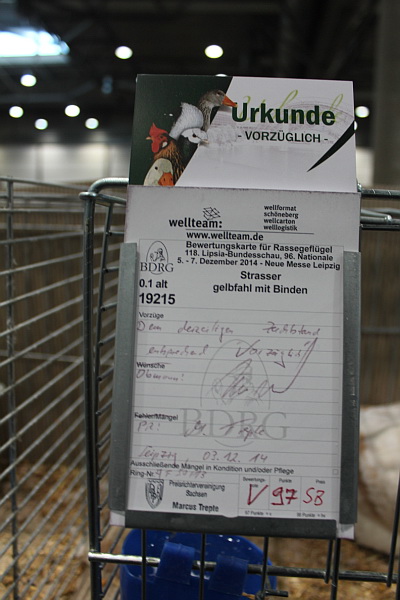 Urkunde
- VORZÜGLICH -
wellteam:
www.wellteam.de
wellformat
schöneberg
wellcarton
welllogistik
Bewertungskarte für Rassegeflügel
118. Lipsia-Bundesschau, 96. Nationale
5. - 7. Dezember 2014 - Neue Messe Leipzig
BDRG
0.1 alt
19215
Strasser
gelbfahl mit Binden
Vorzüge
Dem derzeitigen Zuchtstand
entsprechend Vorzüglich
Wünsche
Obmann:
BDRG
Fehler/Mängel
PR: M. Treple
Leipzig, 03.12.14
Ausschließende Mängel in Kondition und/oder Pflege
Ring-Nr.
Preisrichtervereinigung
Sachsen
Marcus Treple
Bewertungs-
note
Punkte
Preis
V 97 SB
97 Punkte